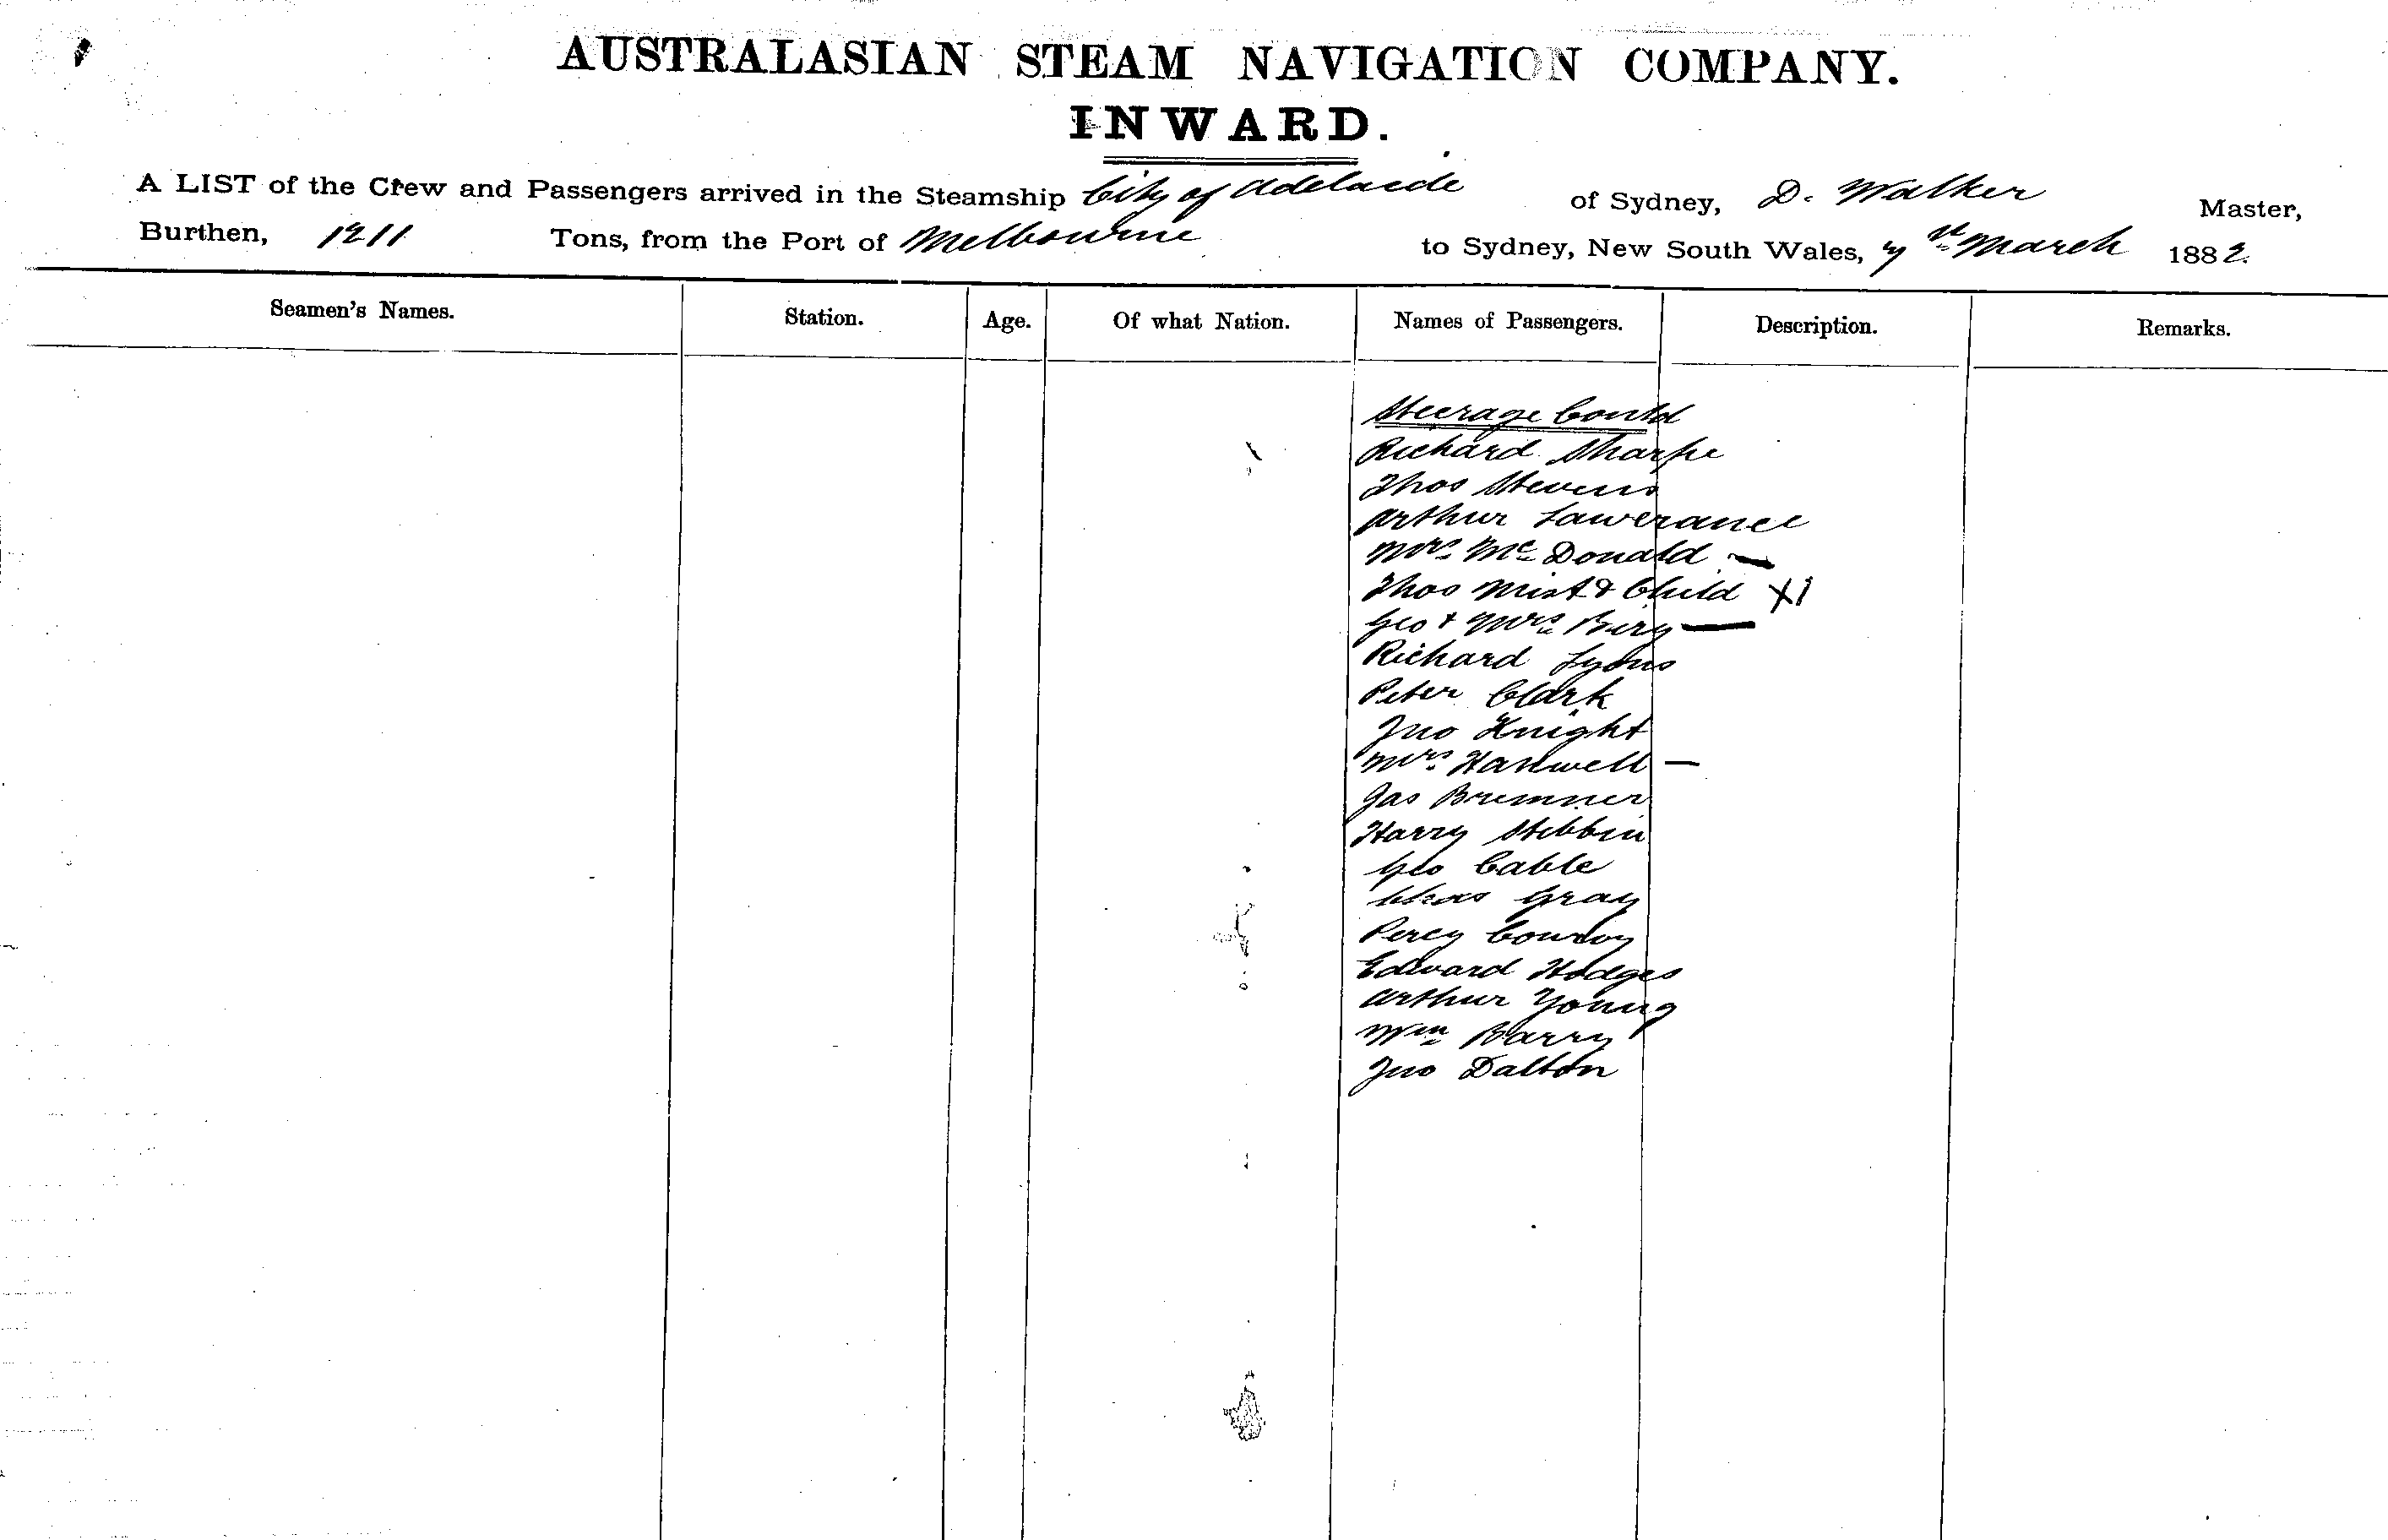 AUSTRALASIAN STEAM NAVIGATION COMPANY.
INWARD.
A LIST of the Crew and Passengers arrived in the Steamship City of Adelaide of Sydney, D. Walker Master,
Burthen, 1211 Tons, from the Port of Melbourne to Sydney, New South Wales, 7th March 1882.
Seamen's Names. Station. Age. Of what Nation. Names of Passengers. Description. Remarks.
Steerage Contd
Richard Sharpe
Thos Stevens
Arthur Lawerance
Mrs McDonald —
Thos Mist & Child X1
Geo & Mrs —
Richard Lyons
Peter Clark
Jno Knight
Mrs —
Jas Bremner
Harry Stebbin
Geo Cable
Chas Gray
Percy
Edward Hodges
Arthur Young
Wm Barry
Jno Dalton